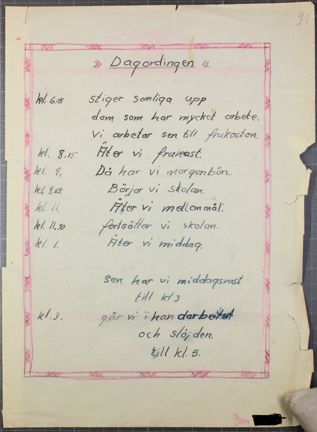 91
» Dagordingen «
kl. 6.15 stiger somliga upp
dom som har mycket arbete.
Vi arbetar sen till frukosten.
kl. 8.15 Äter vi frukost.
kl. 9, Då har vi morgonbön.
kl. 9.05 Börjar vi skolan.
kl. 11. Äter vi mellanmål.
kl. 11.30 fortsätter vi skolan.
kl. 1. Äter vi middag.
Sen har vi middagsrast
till kl 3
kl. 3. går vi i handarbetet
och slöjden.
till kl. 5.